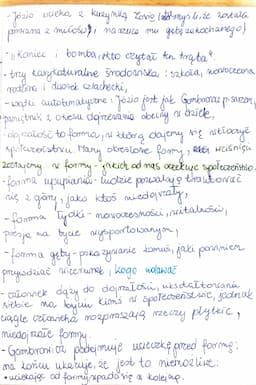 - Józio ucieka z kuzynką Zosią (ona myśli, że została
porwana z miłości, narzuca mu gębę zakochanego)
- „Koniec i bomba, a kto czytał ten trąba"
- trzy karykaturalne środowiska: szkoła, nowoczesna
rodzina i dworek szlachecki,
- wątki autobiograficzne: Józio jest jak Gombrowicz pisarzem,
"pamiętnik z okresu dojrzewania obecny w dziele,
- dojrzałość to forma, w którą dajemy się wtłoczyć
społeczeństwu. Mamy określone formy, wciśnięci
zostajemy w formy - jakich od nas oczekuje społeczeństwo.
- forma upupiania - ludzie pozwalają traktować
się z góry, jako ktoś niedojrzały,
- forma łydki - nowoczesności, witalności,
presja na bycie wysportowanym,
- forma gęby - pokazywanie komuś, jaki powinien
przywdziać wizerunek, kogo udawać
- człowiek dąży do dojrzałości, ukształtowania
siebie na bycie kimś w społeczeństwie, jednak
ciągle człowieka rozpraszają rzeczy płytkie,
niedojrzałe formy.
- Gombrowicz podejmuje ucieczkę przed formą;
na końcu ukazuje, że jest to niemożliwe:
• uciekając od formy wpada się w kolejną.